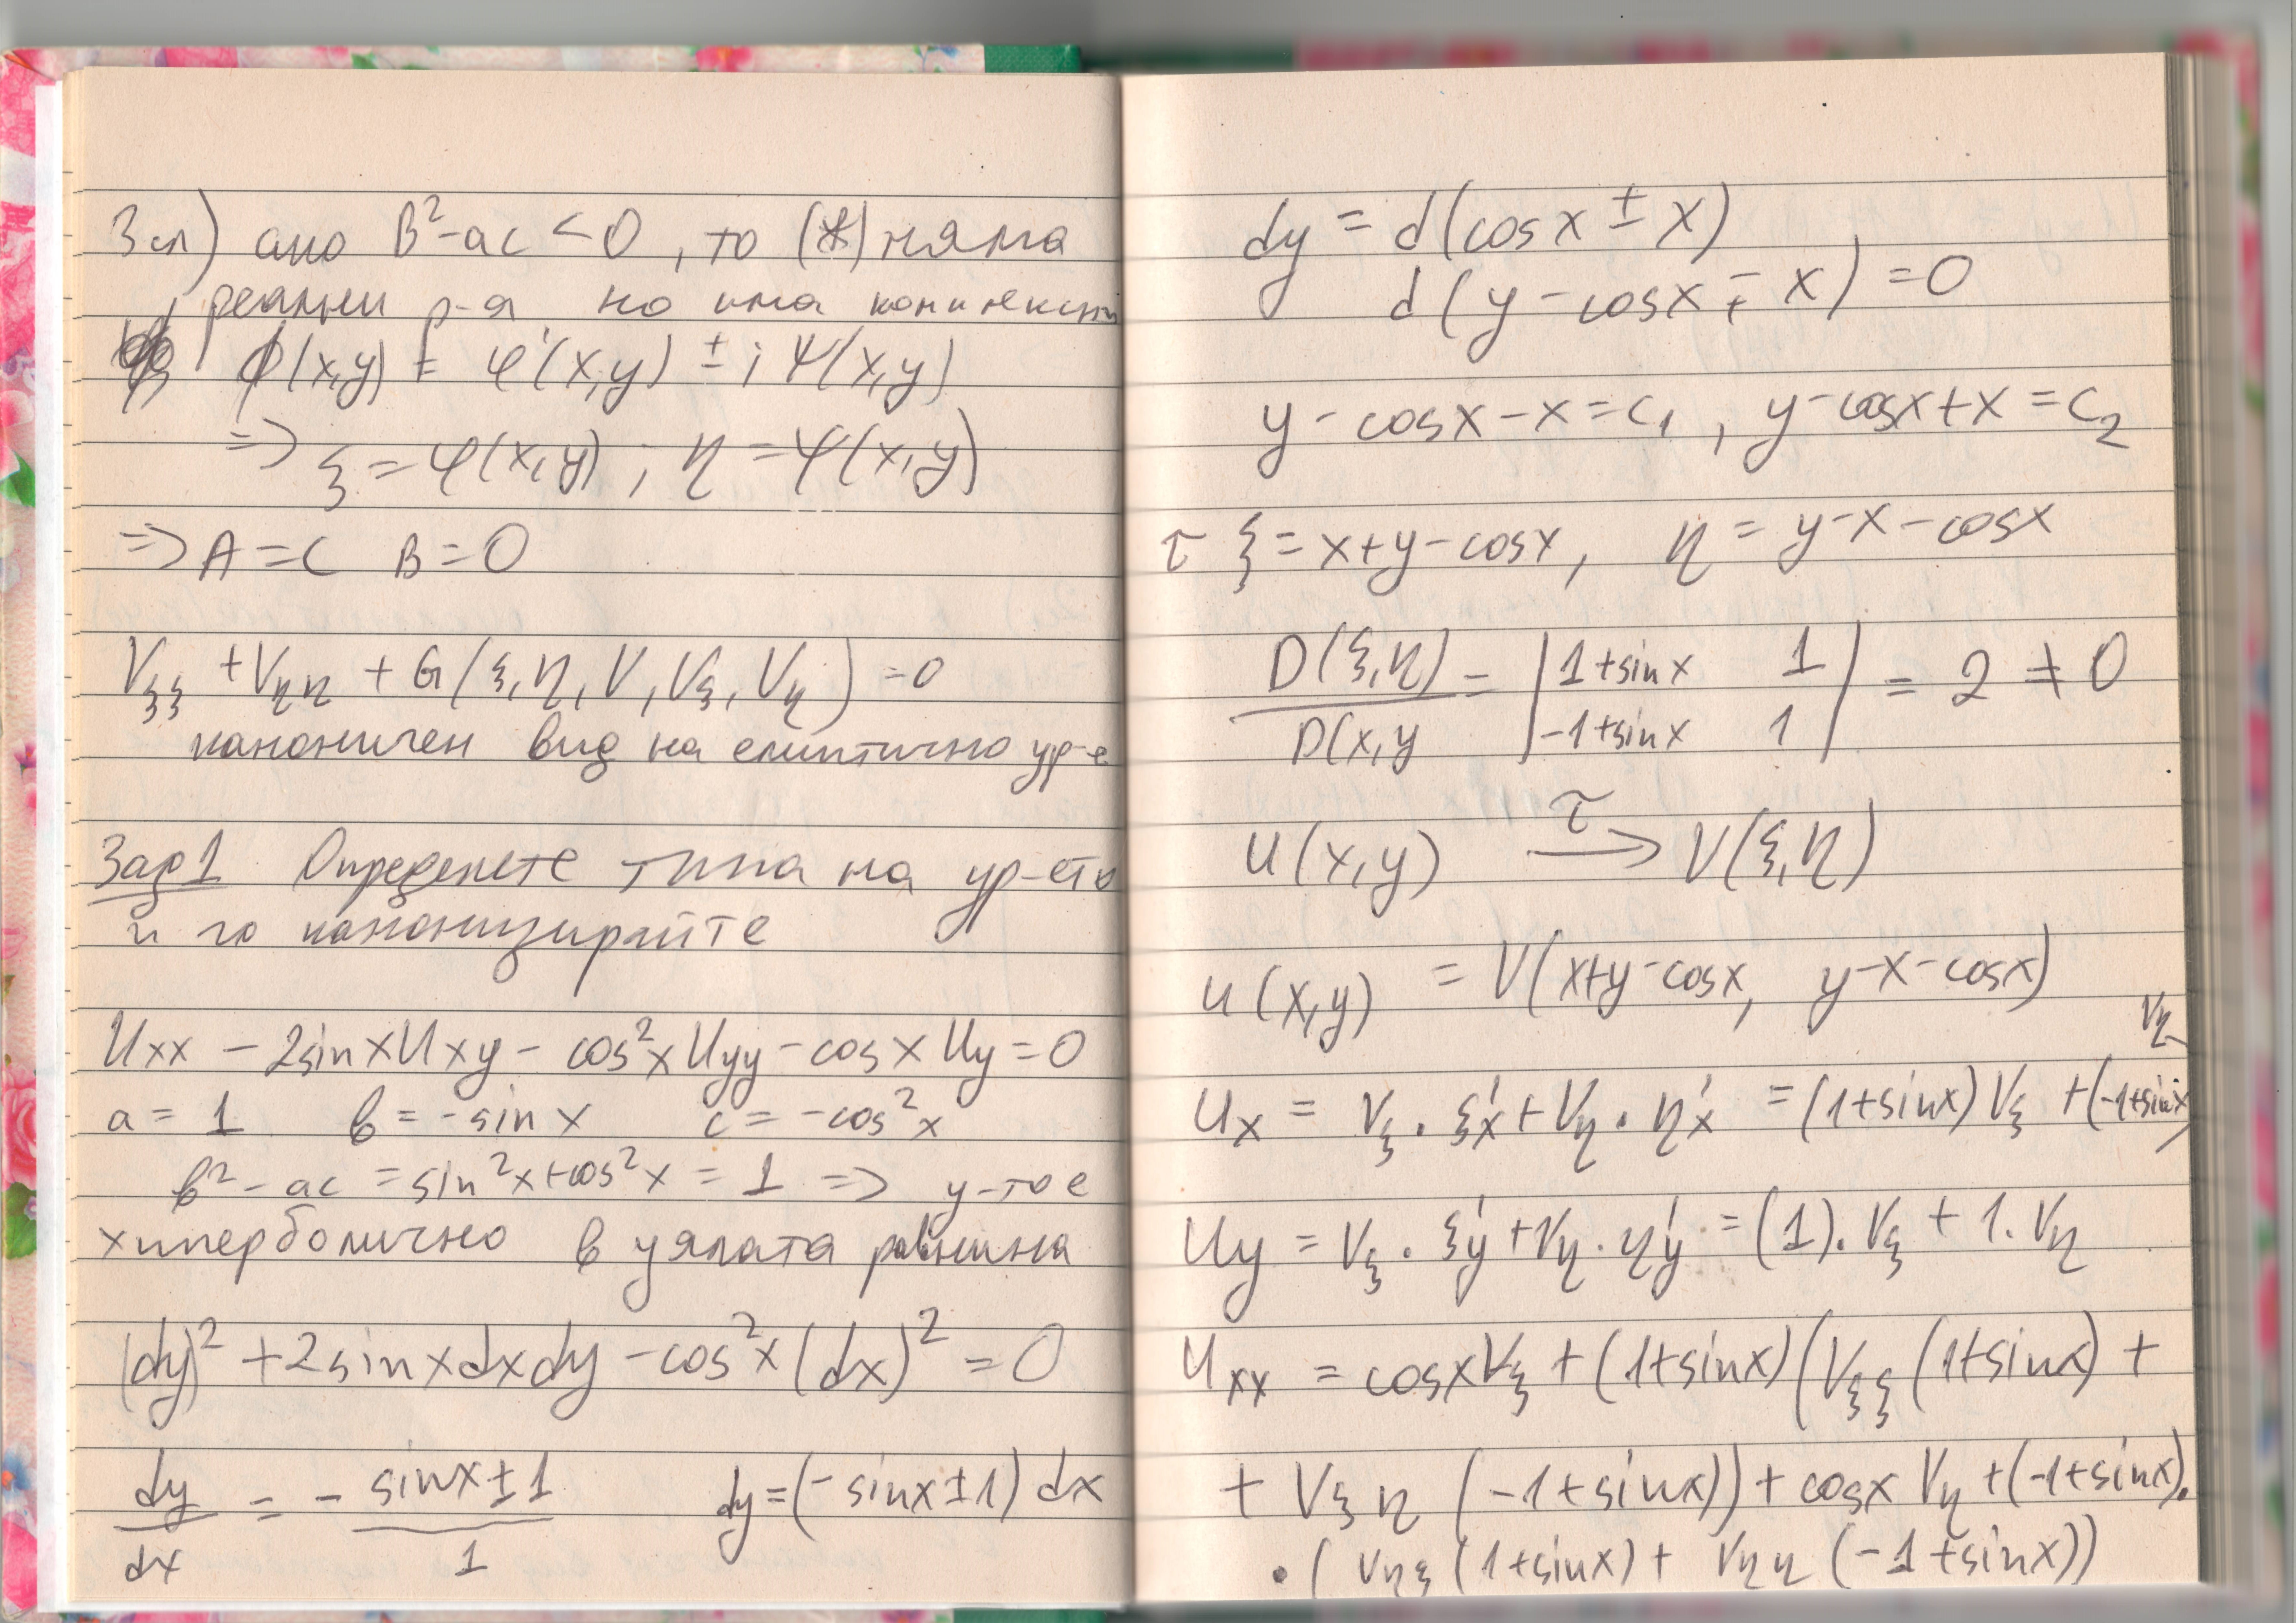 3 сл) ако B²-ac < 0, то (*) няма
реални р-я но има комплексни
ϕ(x,y) = φ(x,y) ± i ψ(x,y)
=> ξ = φ(x,y) ; η = ψ(x,y)
=> A = C B = 0
Vξξ + Vηη + G(ξ, η, V, Vξ, Vη) = 0
каноничен вид на елиптично ур-е
Зад 1 Определете типа на ур-ето
и го канонизирайте
Uxx - 2sinxUxy - cos²xUyy - cosxUy = 0
a = 1 b = -sinx c = -cos²x
b² - ac = sin²x + cos²x = 1 => у-то е
хиперболично в цялата равнина
(dy)² + 2sinxdxdy - cos²x(dx)² = 0
dy/dx = - sinx±1/1 dy = (-sinx±1)dx
dy = d(cosx ± x)
d(y - cosx ∓ x) = 0
y - cosx - x = c₁ , y - cosx + x = c₂
τ ξ = x+y-cosx, η = y-x-cosx
D(ξ,η)/D(x,y = |1+sinx 1|
|-1+sinx 1| = 2 ≠ 0
τ
u(x,y) → V(ξ,η)
u(x,y) = V(x+y-cosx, y-x-cosx)
Ux = Vξ . ξ'x + Vη . η'x = (1+sinx)Vξ + (-1+sinx) Vη
Uy = Vξ . ξ'y + Vη . η'y = (1). Vξ + 1. Vη
Uxx = cosxVξ + (1+sinx)(Vξξ(1+sinx) +
+ Vξη (-1+sinx)) + cosx Vη + (-1+sinx).
. (Vηξ(1+sinx) + Vηη(-1+sinx))